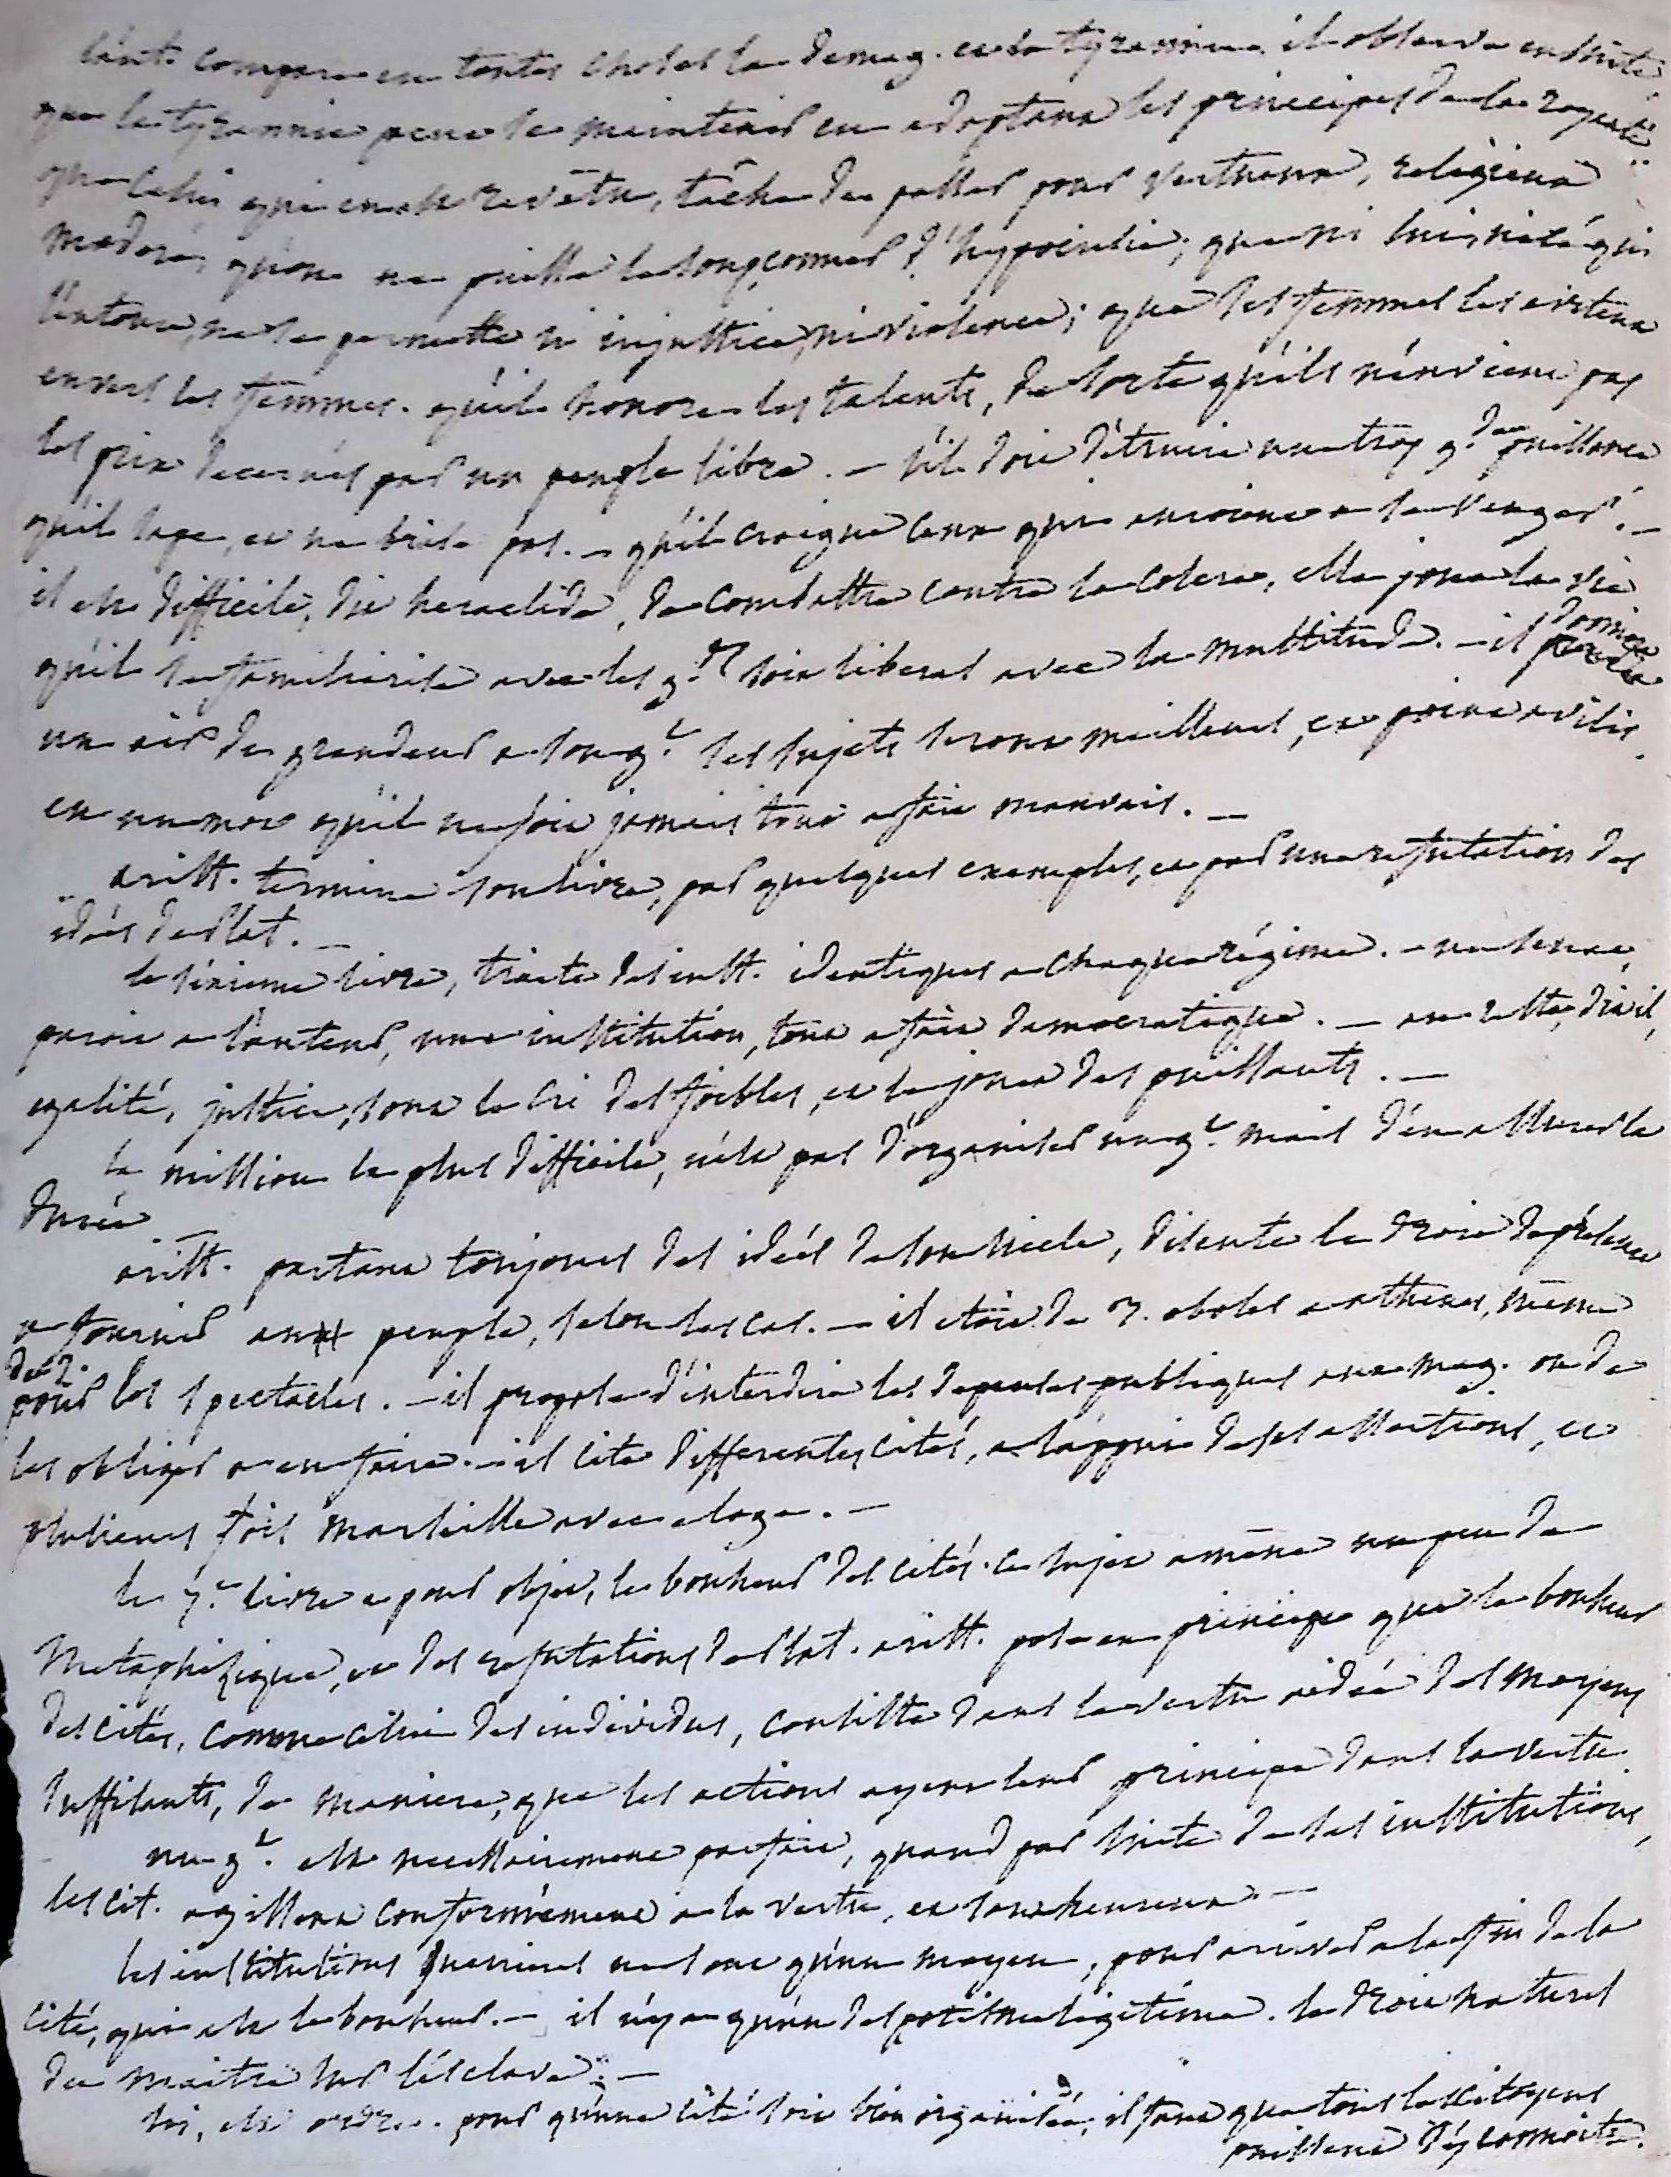 l'aut. compare en toutes choses la demag. et la tyrannie. il observe ensuite,
que la tyrannie peut se maintenir en adoptant les principes de la royauté..
que celui qui en est revêtu, tâche de passer pour vertueux, religieux
modéré, qu'on ne puisse le soupçonner d'hypocrisie; que ni lui, ni ce qui
l'entoure, ne se permette ni injustice, ni violence; que ses femmes les evitent
envers les femmes. qu'il honore les talents, de sorte qu'ils n'envient pas
les prix decernés par un peuple libre. — s'il doit détruire une trop g.de puissance
qu'il sape, et ne brise pas. — qu'il craigne ceux qui auroient à se venger. —
il est difficile, dit heraclide, de combattre contre la colere, elle joue la vie
qu'il se familiarise avec les g.ds soit liberal avec la multitude. — il donnera
un air de grandeur a son g.t ses sujets seront meilleurs, et point avilis.
en un mot qu'il ne soit jamais tout a fait mauvais. —
arist. termine son livre, par quelques exemples, et par une refutation des
idées de Plat. —
le sixieme livre, traite des inst. identiques a chaque régime. — un senat,
paroit a l'auteur, une institution, tout a fait democratique. — au reste, dit il,
egalité, justice, sont le cri des foibles, et le jouet des puissants. —
la mission la plus difficile, n'est pas d'organiser un g.t mais d'en assurer la
durée —
arist. partant toujours des idées de son siecle, discute le droit de présence
a fournir au peuple, selon les cas. — il etoit de 3. oboles a athenes, même
de 2.
pour les spectacles. — il propose d'interdire les depenses publiques aux mag. ou de
les obliger a en faire. — il cite differentes cités, a l'appui de ses assertions, et
plusieurs fois Marseille avec eloge. —
le 7.e livre a pour objet, le bonheur des cités. ce sujet amène un peu de
Metaphizique, et des refutations de Plat. arist. pose en principe que le bonheur
des cités, comme celui des individus, consiste dans la vertu aidée des moyens
suffisants, de maniere, que les actions ayent leur principe dans la vertu.
un g.t est necessairement parfait, quand par suite de ses institutions,
les cit. agissent conformément a la vertu, et sont heureux. —
les institutions guerrieres ne sont qu'un moyen, pour arriver a la fin de la
cité, qui est le bonheur. — il n'y a qu'un despotisme legitime. le droit naturel
du maitre sur l'esclave. —
loi, est ordre. pour qu'une cité soit bien organisée, il faut que tous les citoyens
puissent s'y connoitre.